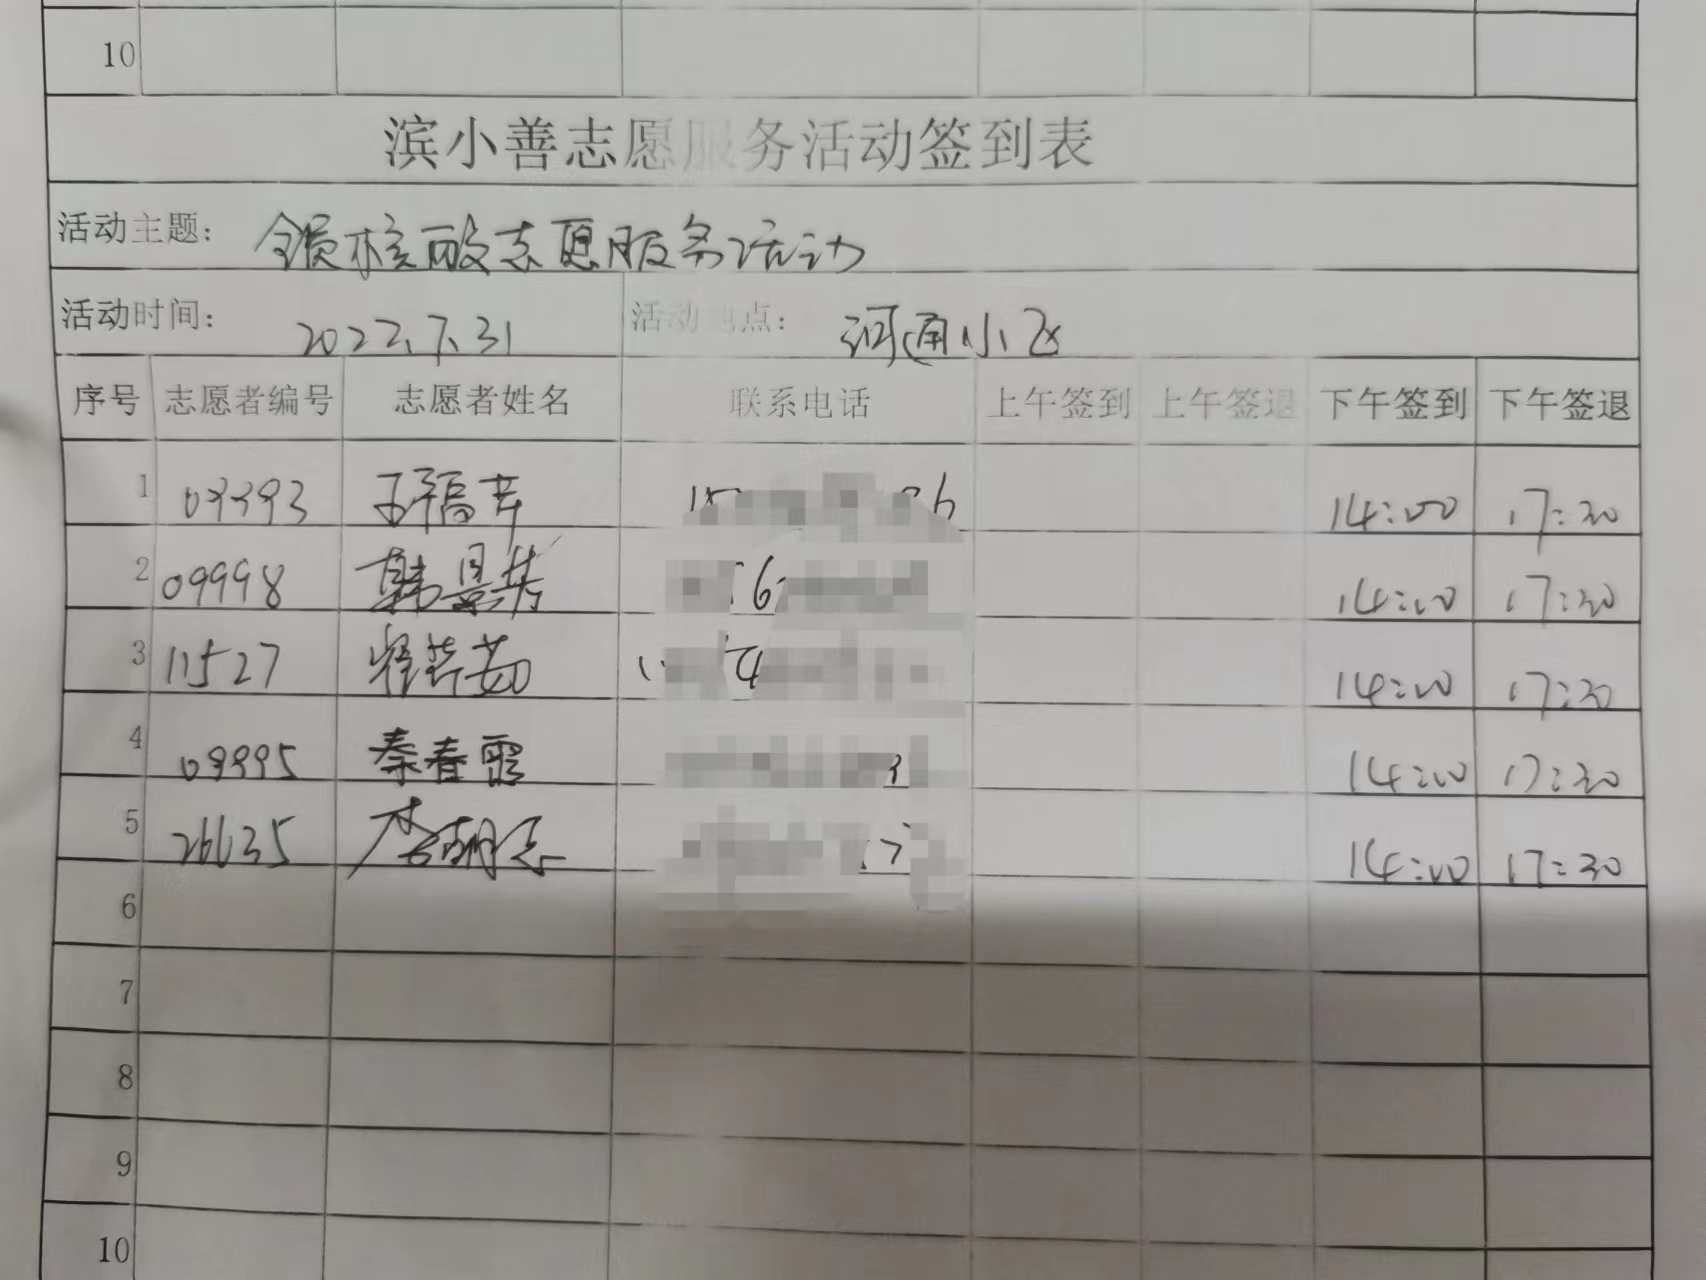 10
滨小善志愿服务活动签到表
活动主题: 全员核酸志愿服务活动
活动时间: 2022.7.31 活动地点: 河通小区
序号 志愿者编号 志愿者姓名 联系电话 上午签到 上午签退 下午签到 下午签退
1 09393 6 14:00 17:30
2 09998 韩景芬 6 14:00 17:30
3 11527 14:00 17:30
4 09995 秦春霞 14:00 17:30
5 26635 李明志 7 14:00 17:30
6
7
8
9
10